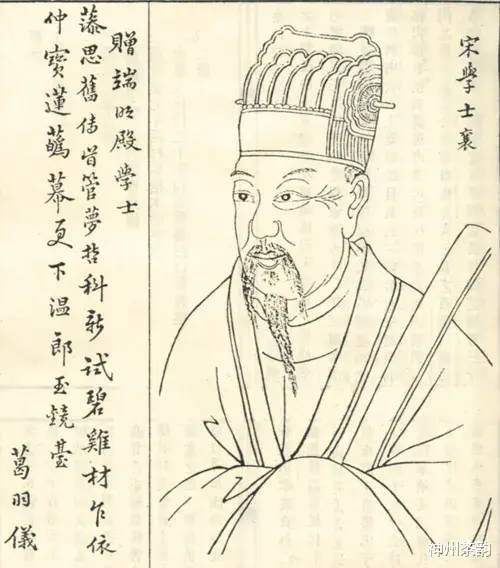 宋學士襄
贈端明殿學士
藻思舊傳管夢哲科新試碧雞材乍依
仲寶蓮蘤幕更下溫郎玉鏡臺
葛羽儀
神州茶韵